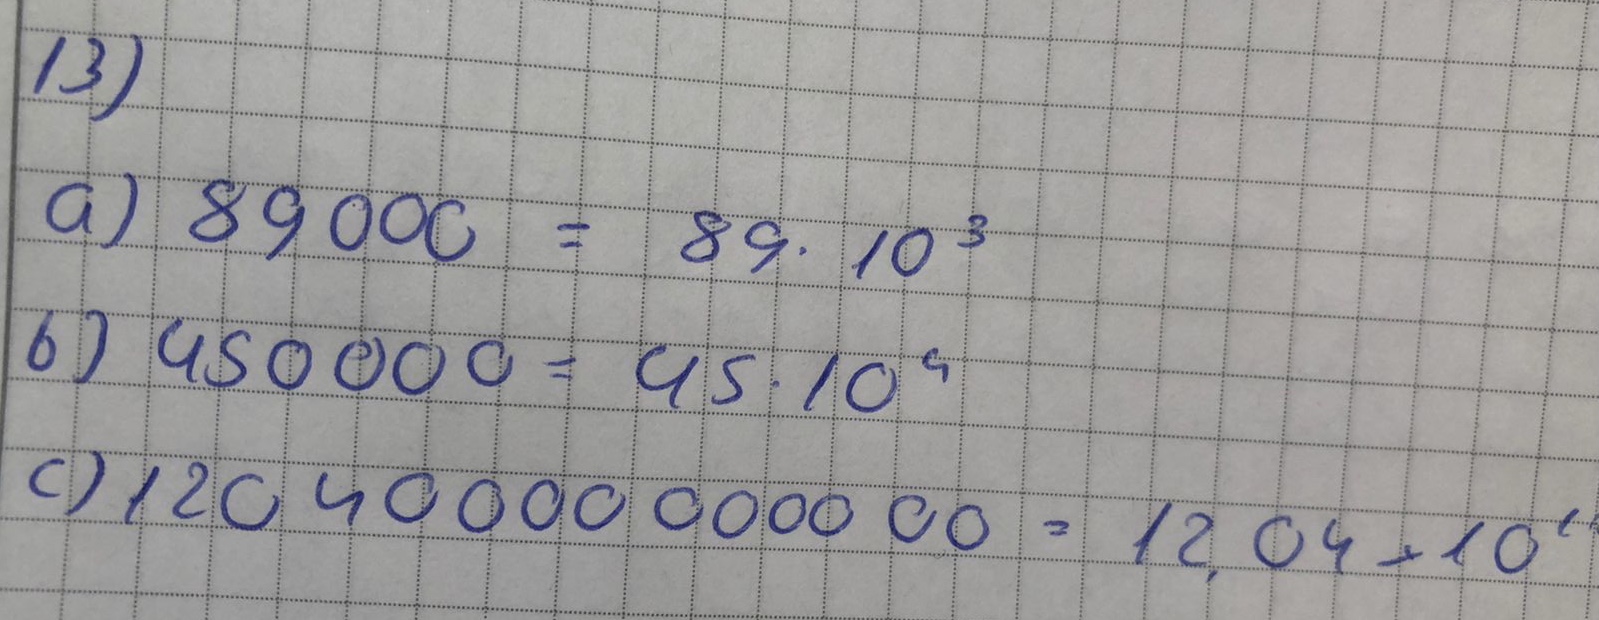 13)
a) 89000 = 89 · 10³
b) 450000 = 45 · 10⁴
c) 12040000000000 = 12,04 · 10